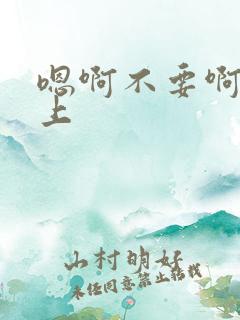 嗯啊不要啊
上
山村明好
未经同意禁止转载